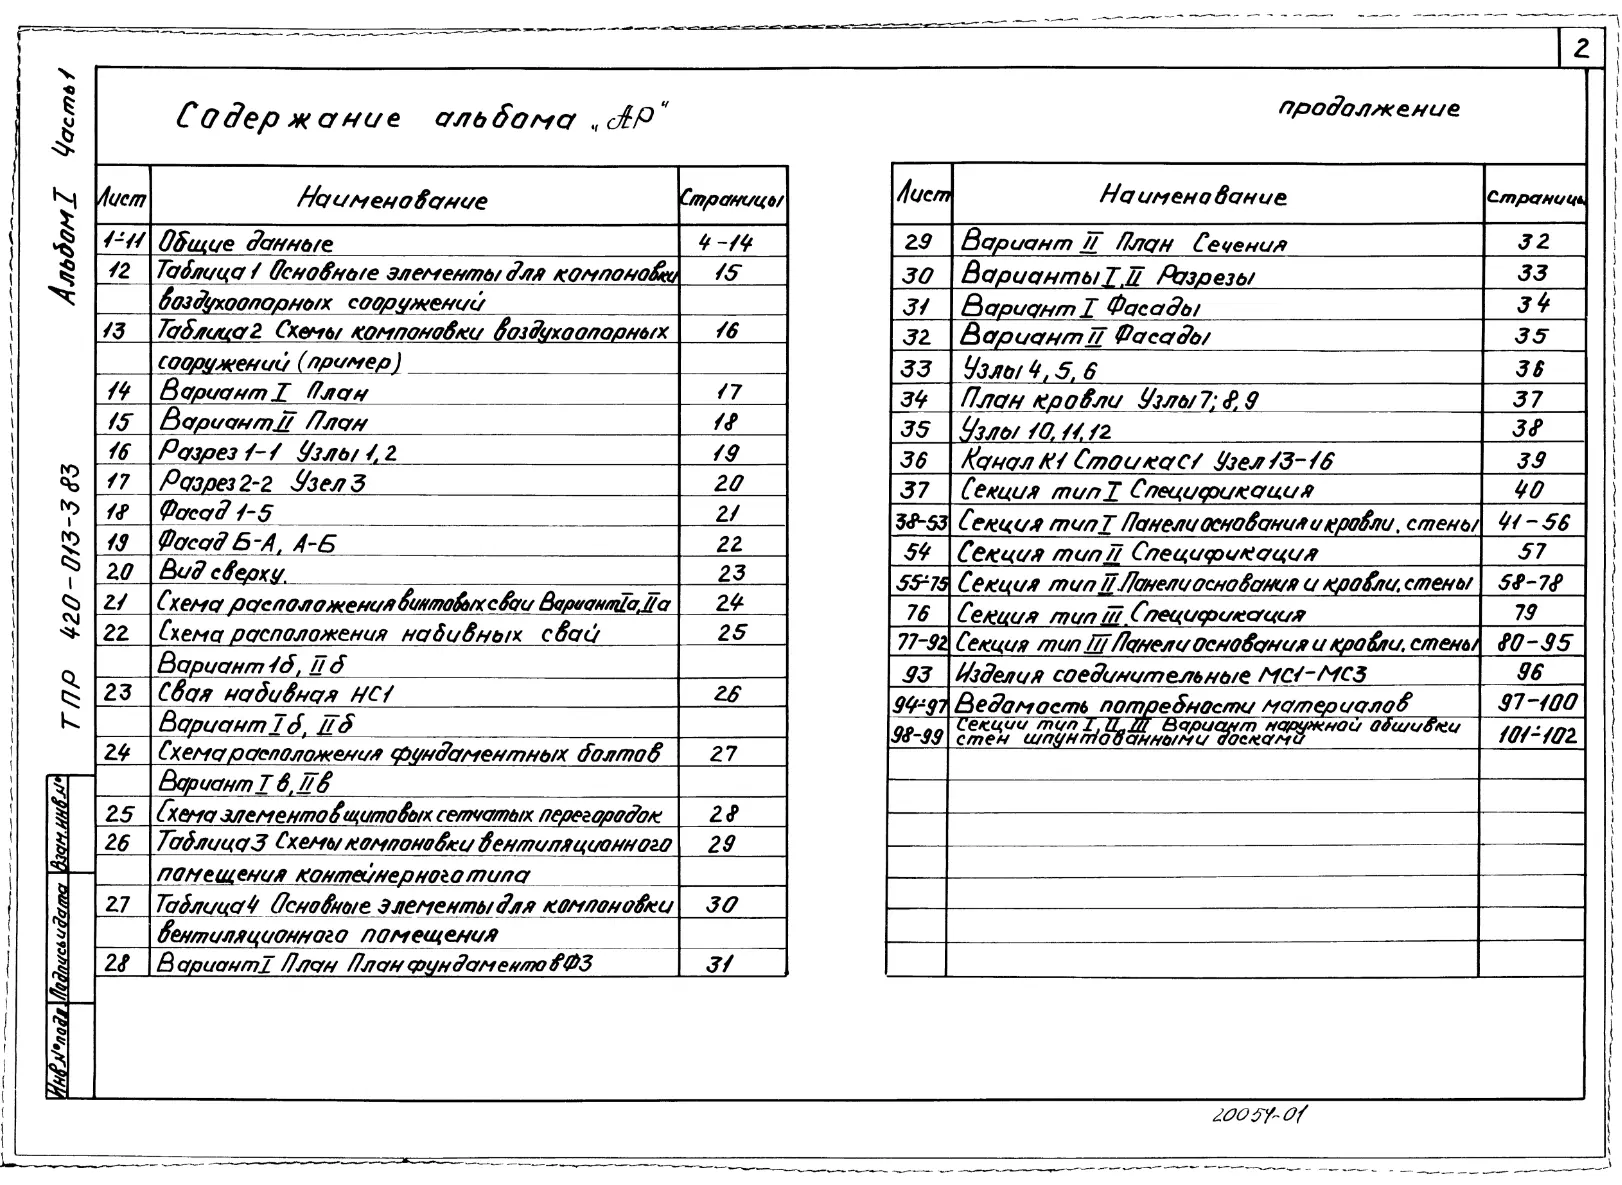 2
Альбом I Часть 1
ТПР 420-013-3 83
Содержание альбома „АР“
Лист Наименование Страницы
1-11 Общие данные 4-14
12 Таблица 1 Основные элементы для компановки 15
воздухоопорных сооружений
13 Таблица 2 Схемы компоновки воздухоопорных 16
сооружений (пример)
14 Вариант I План 17
15 Вариант II План 18
16 Разрез 1-1 Узлы 1,2 19
17 Разрез 2-2 Узел 3 20
18 Фасад 1-5 21
19 Фасад Б-А, А-Б 22
20 Вид сверху. 23
21 Схема расположения винтовых сваи Вариант Iа, IIа 24
22 Схема расположения набивных свай 25
Вариант 1б, II б
23 Свая набивная НС1 26
Вариант I б, II б
24 Схема расположения фундаментных болтов 27
Вариант I в, II в
25 Схема элементов щитовых сетчатых перегородок 28
26 Таблица 3 Схемы компоновки вентиляционного 29
помещения контейнерного типа
27 Таблица 4 Основные элементы для компановки 30
вентиляционного помещения
28 Вариант I План План фундаментов Ф3 31
продолжение
Лист Наименование Страницы
29 Вариант II План Сечения 32
30 Варианты I, II Разрезы 33
31 Вариант I Фасады 34
32 Вариант II Фасады 35
33 Узлы 4, 5, 6 36
34 План кровли Узлы 7; 8, 9 37
35 Узлы 10, 11, 12 38
36 Канал К1 Стоика С1 Узел 13-16 39
37 Секция тип I Спецификация 40
38-53 Секция тип I Панели основания и кровли. стены 41-56
54 Секция тип II Спецификация 57
55-75 Секция тип II. Панели основания и кровли, стены 58-78
76 Секция тип III. Спецификация 79
77-92 Секция тип III Панели основания и кровли. стены 80-95
93 Изделия соединительные МС1-МС3 96
94-97 Ведомость потребности материалов 97-100
98-99 Секции тип I, II, III Вариант наружной обшивки
стен шпунтованными досками 101-102
Взам.инв.№
Подпись и дата
Инв.№ подл.
20054-01